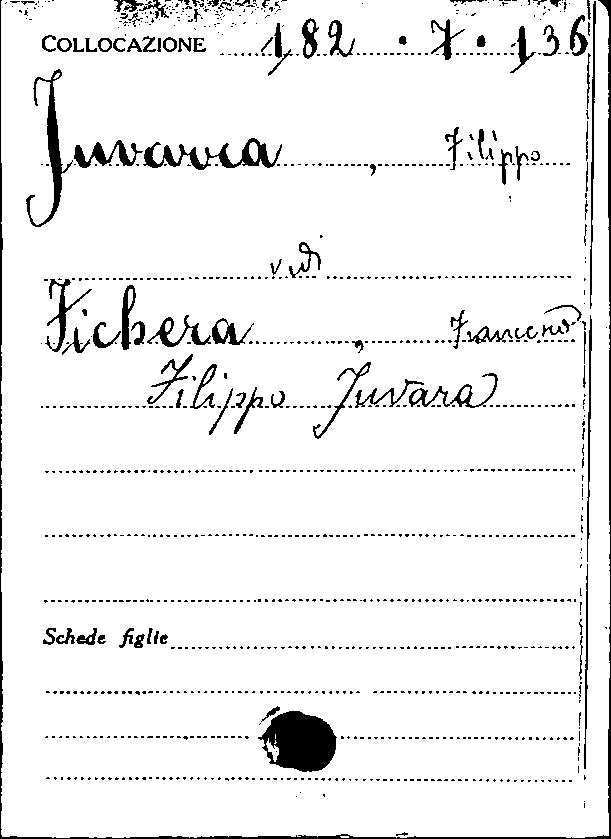 COLLOCAZIONE 182 . 7 . 136
Juvarra, Filippo
vedi
Fichera, Francesco
Filippo Juvara
Schede figlie